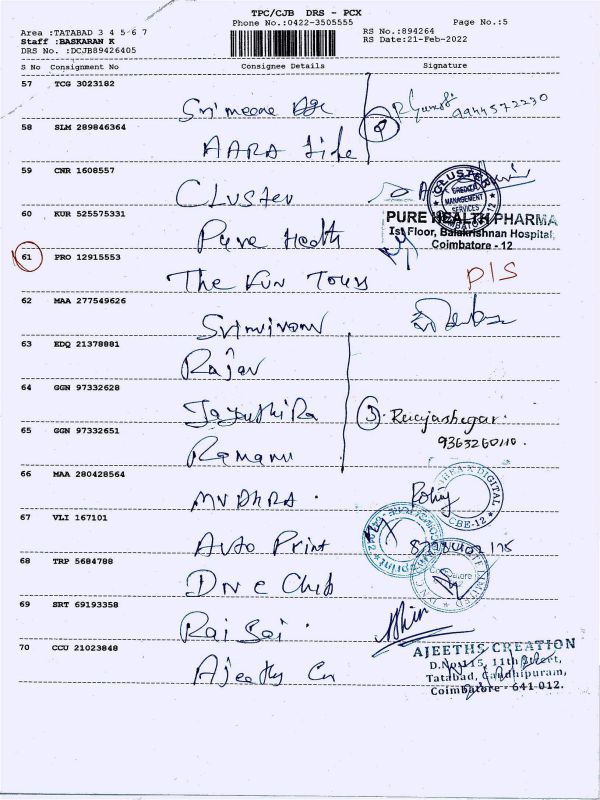 TPC/CJB DRS - PCX
Phone No.:0422-3505555 Page No.:5
Area :TATABAD 3 4 5 6 7 RS No.:894264
Staff :BASKARAN K RS Date:21-Feb-2022
DRS No. :DCJB89426405
S No Consignment No Consignee Details Signature
57 TCG 3023182
Srimeone
9944572230
58 SLM 289846364
AARA Life
59 CNR 1608557
Cluster
CLUSTER CREDIT MANAGEMENT SERVICES COIMBATORE-12
60 KUR 525575331
Pure Health
PURE HEALTH PHARMA
Ist Floor, Balakrishnan Hospital,
Coimbatore - 12
61 PRO 12915553
The Fun Tours D/S
62 MAA 277549626
63 EDQ 21378881
Rajan
64 GGN 97332628
3. Raajashegar.
65 GGN 97332651 9363260110.
Ramani
66 MAA 280428564
DIGITAL CBE-12
67 VLI 167101
Auto Print
68 TRP 5684788
69 SRT 69193358
Rai Sai
70 CCU 21023848
Ajeeths Cn
AJEETHS CREATION
D.No.115, 11th Street,
Tatabad, Gandhipuram,
Coimbatore - 641-012.